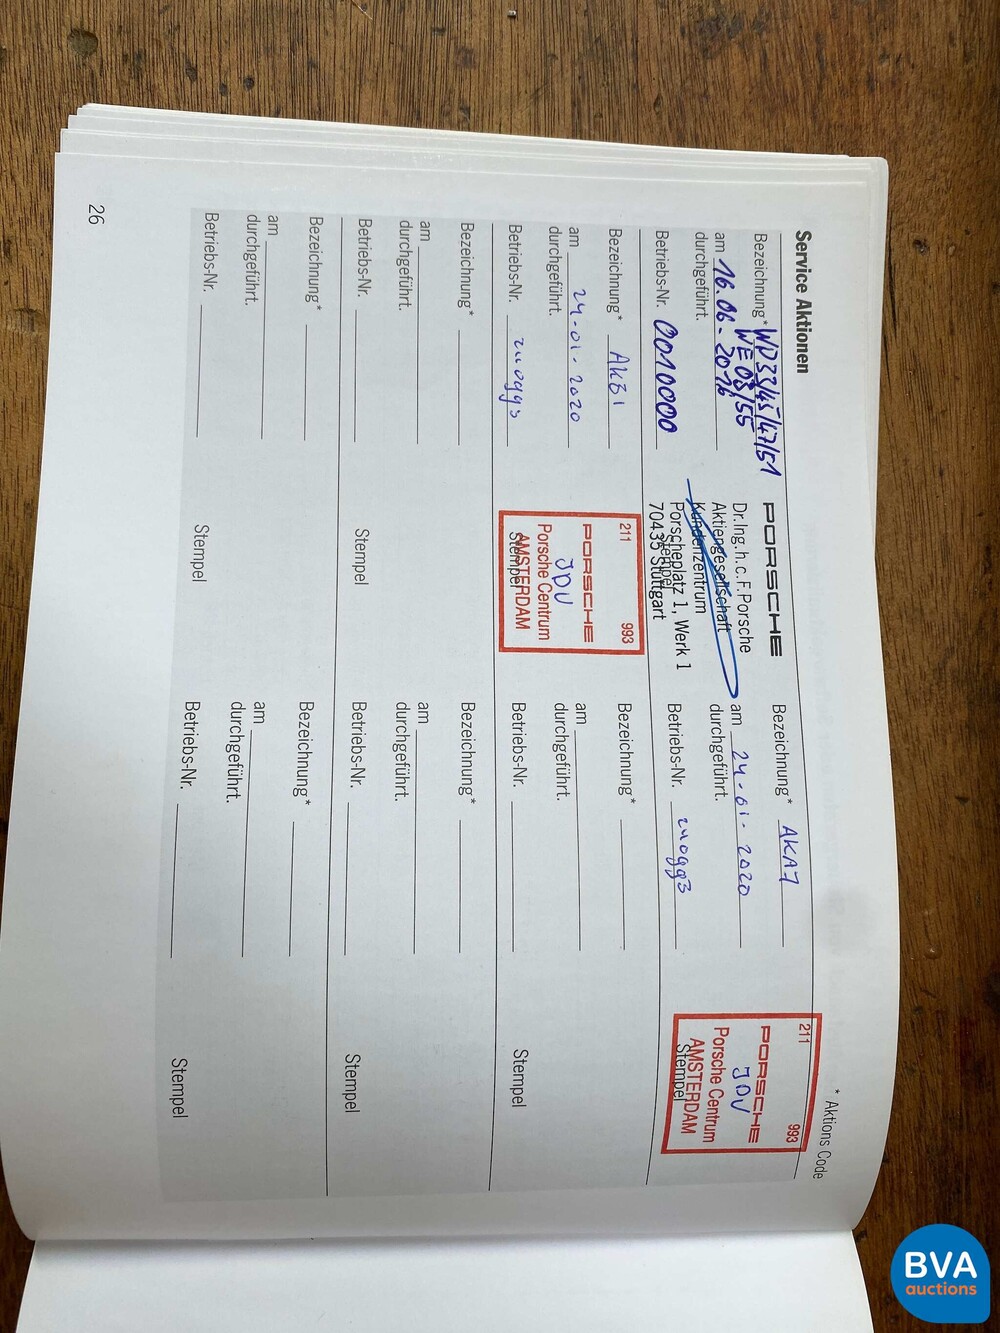 Service Aktionen
* Aktions Code
Bezeichnung* WD33/45/47/51
WE 03/55
am 16.06.2016
durchgeführt.
Betriebs-Nr. 0010000
PORSCHE
Dr.Ing.h.c.F.Porsche
Aktiengesellschaft
Kundenzentrum
Porscheplatz 1, Werk 1
70435 Stuttgart
Stempel
Bezeichnung* AKA7
am 24-01-2020
durchgeführt.
Betriebs-Nr.
211 993
PORSCHE
JDV
Porsche Centrum
AMSTERDAM
Stempel
Bezeichnung*
am 24-01-2020
durchgeführt.
Betriebs-Nr.
211 993
PORSCHE
JDV
Porsche Centrum
AMSTERDAM
Stempel
Bezeichnung*
am
durchgeführt.
Betriebs-Nr.
Stempel
Bezeichnung*
am
durchgeführt.
Betriebs-Nr.
Stempel
Bezeichnung*
am
durchgeführt.
Betriebs-Nr.
Stempel
Bezeichnung*
am
durchgeführt.
Betriebs-Nr.
Stempel
Bezeichnung*
am
durchgeführt.
Betriebs-Nr.
Stempel
26
BVA
auctions